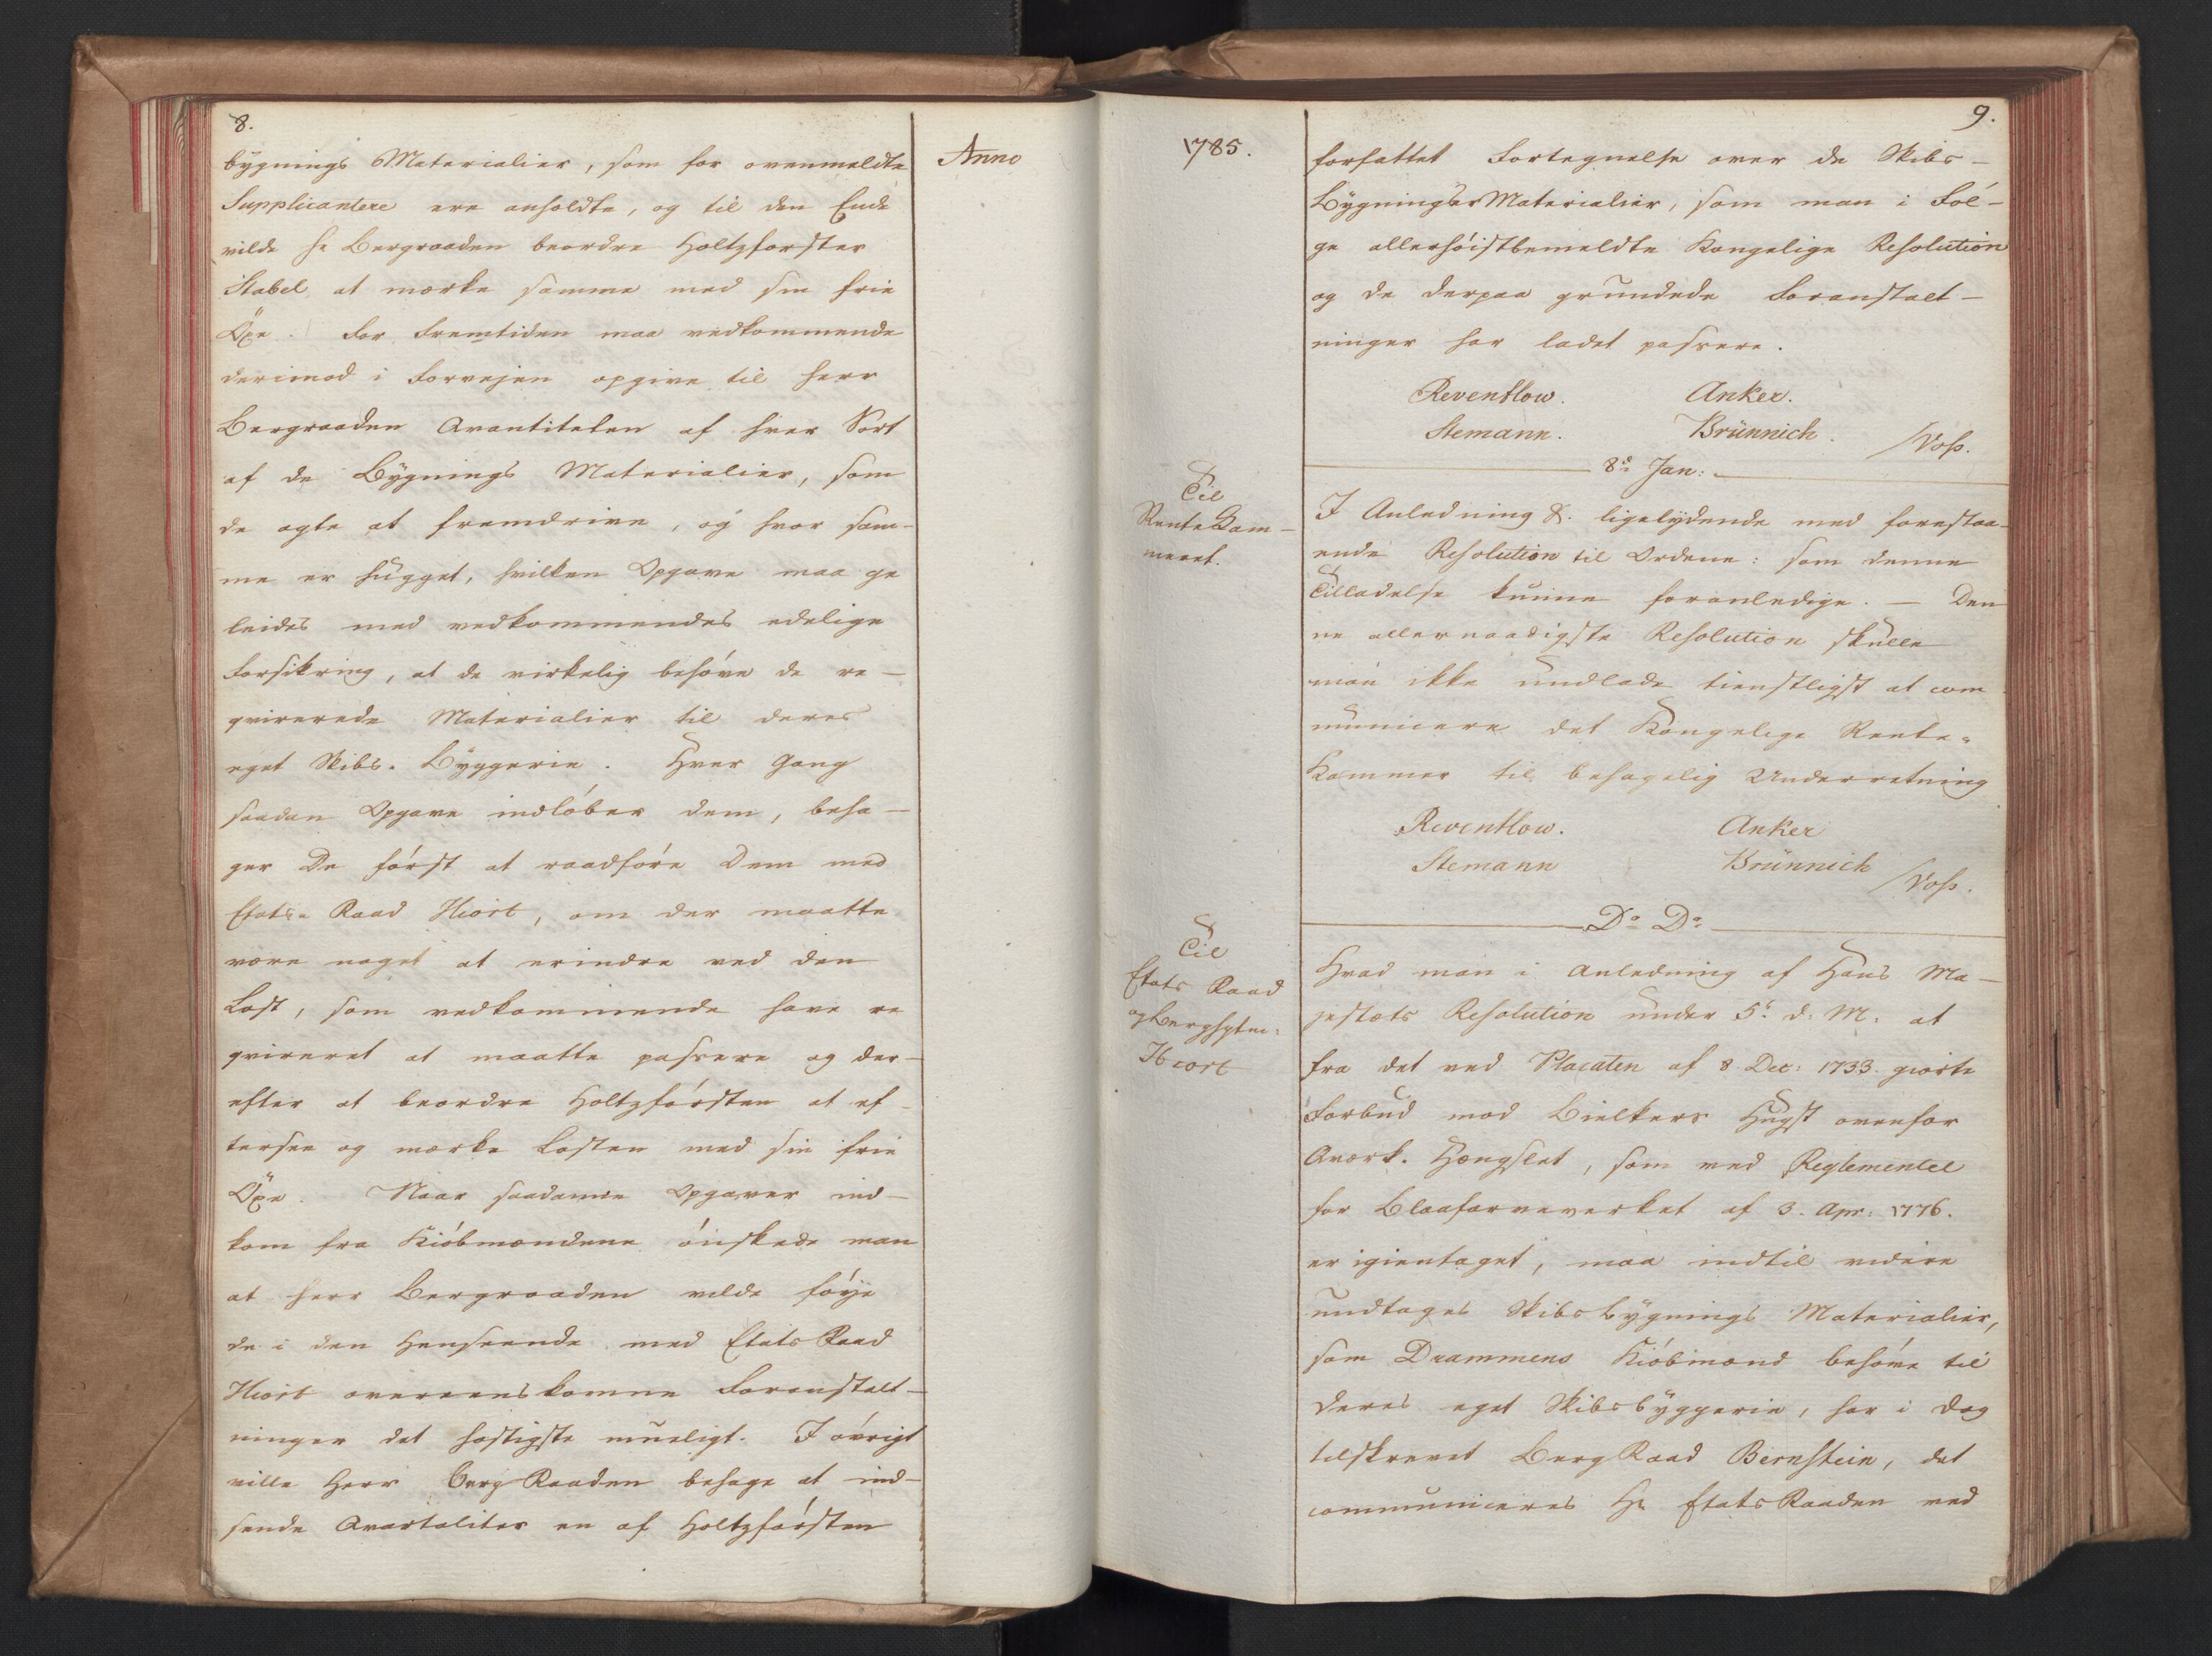 8.
Anno
bÿgnings Materialier, som for ovenmeldte
Supplicantere ere anholdte, og til den Ende
vilde Hr Bergraaden beordre Holtzforster
Stabel at mærke samme med sin frie
Öxe. For Fremtiden maa vedkommende
derimod i Forvejen opgive til Herr
Bergraaden Qvantiteten af hver Sort
af de Bÿgnings Materialier, som
de agte at fremdrive, og hvor sam-
me er hugget, hvilken Opgave maa ge
leides med vedkommendes edelige
Forsikring, at de virkelig behøve de re-
qvirerede Materialier til deres
eget Skibs-Bÿggerie. Hver Gang
saadan Opgave indløber dem, beha-
ger De først at raadføre Dem med
Etats-Raad Hiort, om der maatte
være noget at erindre ved den
Last, som vedkommende have re
qvireret at maatte passere og der-
efter at beordre Holtzførsten at ef-
tersee og mærke Lasten med sin frie
Öxe. Naar saadanne Opgaver ind-
kom fra Kiøbmændene ønskede man
at Herr Bergraaden vilde føÿe
de i den Henseende med Etats Raad
Hiort overeenskomne Foranstalt-
ninger det hastigste mueligt. I øvrigt
ville Herr Berg Raaden behage at ind-
sende Qvartaliter en af Holtzførsten
1785.
9.
forfattet Fortegnelse over de Skibs-
Bÿgnings Materialier, som man i Føl-
ge allerhøistbemeldte Kongelige Resolution
og de derpaa grundede Foranstalt-
ninger har ladet passere.
Reventlow. Anker.
Stemann. Brünnich. /Voss.
8de Jan:
Til
Rente Kam-
meret.
I Anledning &. ligelÿdende med forestaa-
ende Resolution til Ordene: som denne
Tilladelse kunne foranledige. — Den
ne allernaadigste Resolution skulle
man ikke undlade tienstligst at com
municere det Kongelige Rente-
Kammer til behagelig Underretning
Reventlow. Anker
Stemann Brünnich /Voss.
Do Do
Til
Etats Raad
og Berghptm:
Hiort
Hvad man i Anledning af Hans Ma-
jestæts Resolution under 5t d: M: at
fra det ved Placaten af 8. Dec: 1733. giorte
Forbud mod Bielkers Hugst ovenfor
Qværk. Hængslet, som ved Reglementet
for Blaafarveverket af 3. Apr: 1776.
er igientaget, maa indtil videre
undtages Skibs bÿgnings Materialier,
som Drammens Kiøbmænd behøve til
deres eget Skibsbÿggerie, har i dag
tilskrevet Berg Raad Bernstein, det
communiceres Hr Etats Raaden ved